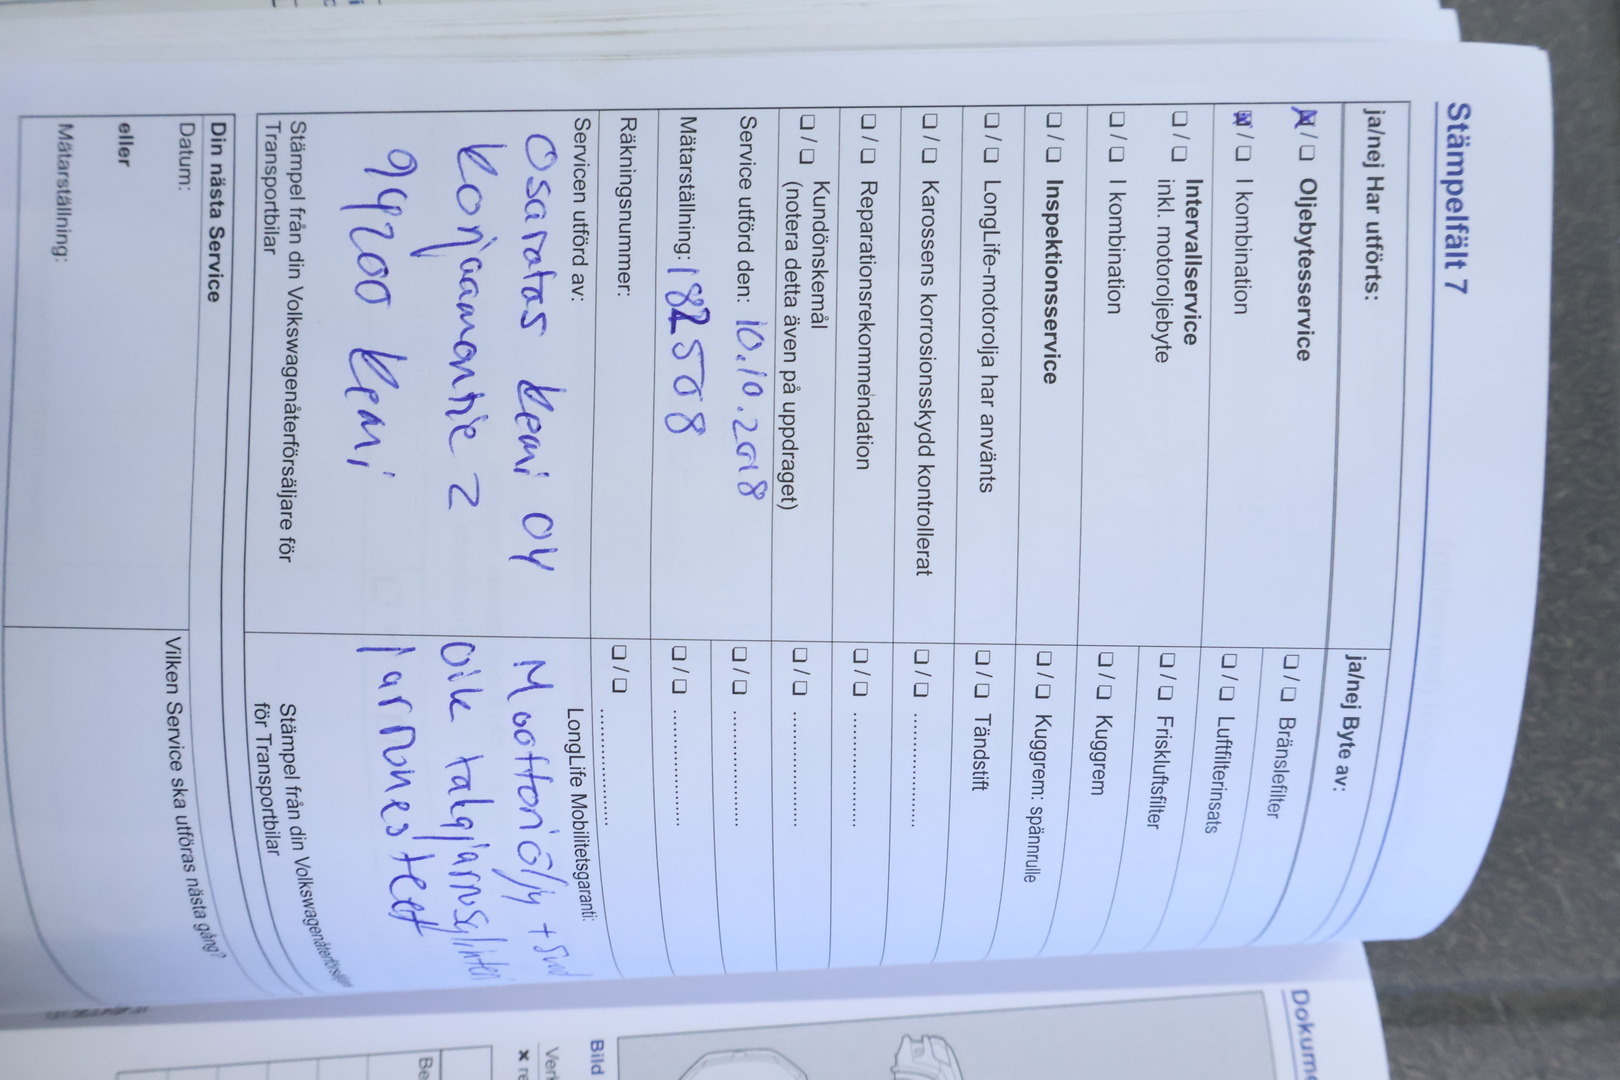 Stämpelfält 7
ja/nej Har utförts:
☒ / ❑ Oljebytesservice
☒ / ❑ I kombination
❑ / ❑ Intervallservice
inkl. motoroljebyte
❑ / ❑ I kombination
❑ / ❑ Inspektionsservice
❑ / ❑ LongLife-motorolja har använts
❑ / ❑ Karossens korrosionsskydd kontrollerat
❑ / ❑ Reparationsrekommendation
❑ / ❑ Kundönskemål
(notera detta även på uppdraget)
Service utförd den: 10.10.2018
Mätarställning: 182508
Räkningsnummer:
Servicen utförd av:
Osaratas Kemi OY
Korjaamontie 2
94200 Kemi
Stämpel från din Volkswagenåterförsäljare för
Transportbilar
ja/nej Byte av:
❑ / ❑ Bränslefilter
❑ / ❑ Luftfilterinsats
❑ / ❑ Friskluftsfilter
❑ / ❑ Kuggrem
❑ / ❑ Kuggrem: spännrulle
❑ / ❑ Tändstift
❑ / ❑ ....................
❑ / ❑ ....................
❑ / ❑ ....................
❑ / ❑ ....................
❑ / ❑ ....................
❑ / ❑ ....................
LongLife Mobilitetsgaranti:
Moottoriöljy +
oik takajarrusylinteri
jarrunesteet
Stämpel från din Volkswagenåterförsäljare
för Transportbilar
Din nästa Service
Datum:
eller
Mätarställning:
Vilken Service ska utföras nästa gång?
Dokume
Bild
Be